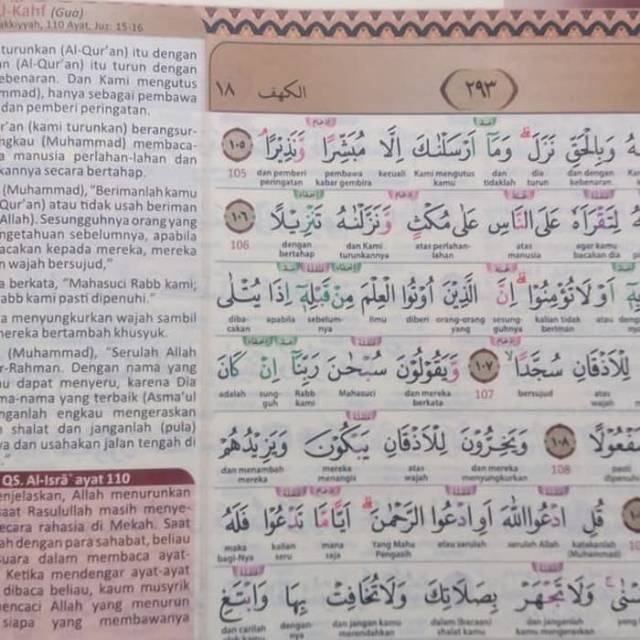 l-Kahf (Gua)
akkiyyah, 110 Ayat, Juz: 15-16
turunkan (Al-Qur'an) itu dengan
n (Al-Qur'an) itu turun dengan
ebenaran. Dan Kami mengutus
mmad), hanya sebagai pembawa
dan pemberi peringatan.
r'an (kami turunkan) berangsur-
ngkau (Muhammad) membaca-
a manusia perlahan-lahan dan
kannya secara bertahap.
(Muhammad), "Berimanlah kamu
Qur'an) atau tidak usah beriman
Allah). Sesungguhnya orang yang
ngetahuan sebelumnya, apabila
acakan kepada mereka, mereka
n wajah bersujud,"
a berkata, "Mahasuci Rabb kami;
abb kami pasti dipenuhi."
a menyungkurkan wajah sambil
mereka bertambah khusyuk.
(Muhammad), "Serulah Allah
r-Rahman. Dengan nama yang
u dapat menyeru, karena Dia
ma-nama yang terbaik (Asma'ul
nganlah engkau mengeraskan
m shalat dan janganlah (pula)
ya dan usahakan jalan tengah di
."
QS. Al-Isrā` ayat 110
enjelaskan, Allah menurunkan
saat Rasulullah masih menye-
ecara rahasia di Mekah. Saat
ah dengan para sahabat, beliau
suara dalam membaca ayat-
Ketika mendengar ayat-ayat
dibaca beliau, kaum musyrik
encaci Allah yang menurun
siapa yang membawanya
٢٩٣ الكهف ١٨
وَبِالْحَقِّ نَزَلَ ۗ وَمَآ اَرْسَلْنٰكَ اِلَّا مُبَشِّرًا وَّنَذِيْرًا ۘ ١٠٥
105 dan pemberi peringatan pembawa kabar gembira kecuali Kami mengutus kamu dan tidaklah dia turun dan dengan kebenaran
لِتَقْرَاَهٗ عَلَى النَّاسِ عَلٰى مُكْثٍ وَّنَزَّلْنٰهُ تَنْزِيْلًا ١٠٦
106 dengan bertahap dan Kami turunkannya atas perlahan-lahan atas manusia agar kamu bacakan dia
اَوْ لَا تُؤْمِنُوْا ۗ اِنَّ الَّذِيْنَ اُوْتُوا الْعِلْمَ مِنْ قَبْلِهٖٓ اِذَا يُتْلٰى
diba-cakan apabila sebelum-nya ilmu diberi orang-orang yang sesung-guhnya kalian tidak beriman atau
لِلْاَذْقَانِ سُجَّدًا ۙ ١٠٧ وَّيَقُوْلُوْنَ سُبْحٰنَ رَبِّنَآ اِنْ كَانَ
adalah sung-guh Rabb kami Mahasuci dan mereka berkata 107 bersujud atas wajah
١٠٨ وَيَخِرُّوْنَ لِلْاَذْقَانِ يَبْكُوْنَ وَيَزِيْدُهُمْ
dan menambah mereka mereka menangis atas wajah dan mereka menyungkurkan 108
قُلِ ادْعُوا اللّٰهَ اَوِ ادْعُوا الرَّحْمٰنَ ۗ اَيًّا مَّا تَدْعُوْا فَلَهُ
maka bagi-Nya kalian seru mana saja Yang Maha Pengasih atau serulah serulah Allah katakanlah (Muhammad)
وَلَا تَجْهَرْ بِصَلَاتِكَ وَلَا تُخَافِتْ بِهَا وَابْتَغِ
dan carilah dengan-nya dan jangan kamu merendahkan dalam (bacaan) shalat kamu dan janganlah